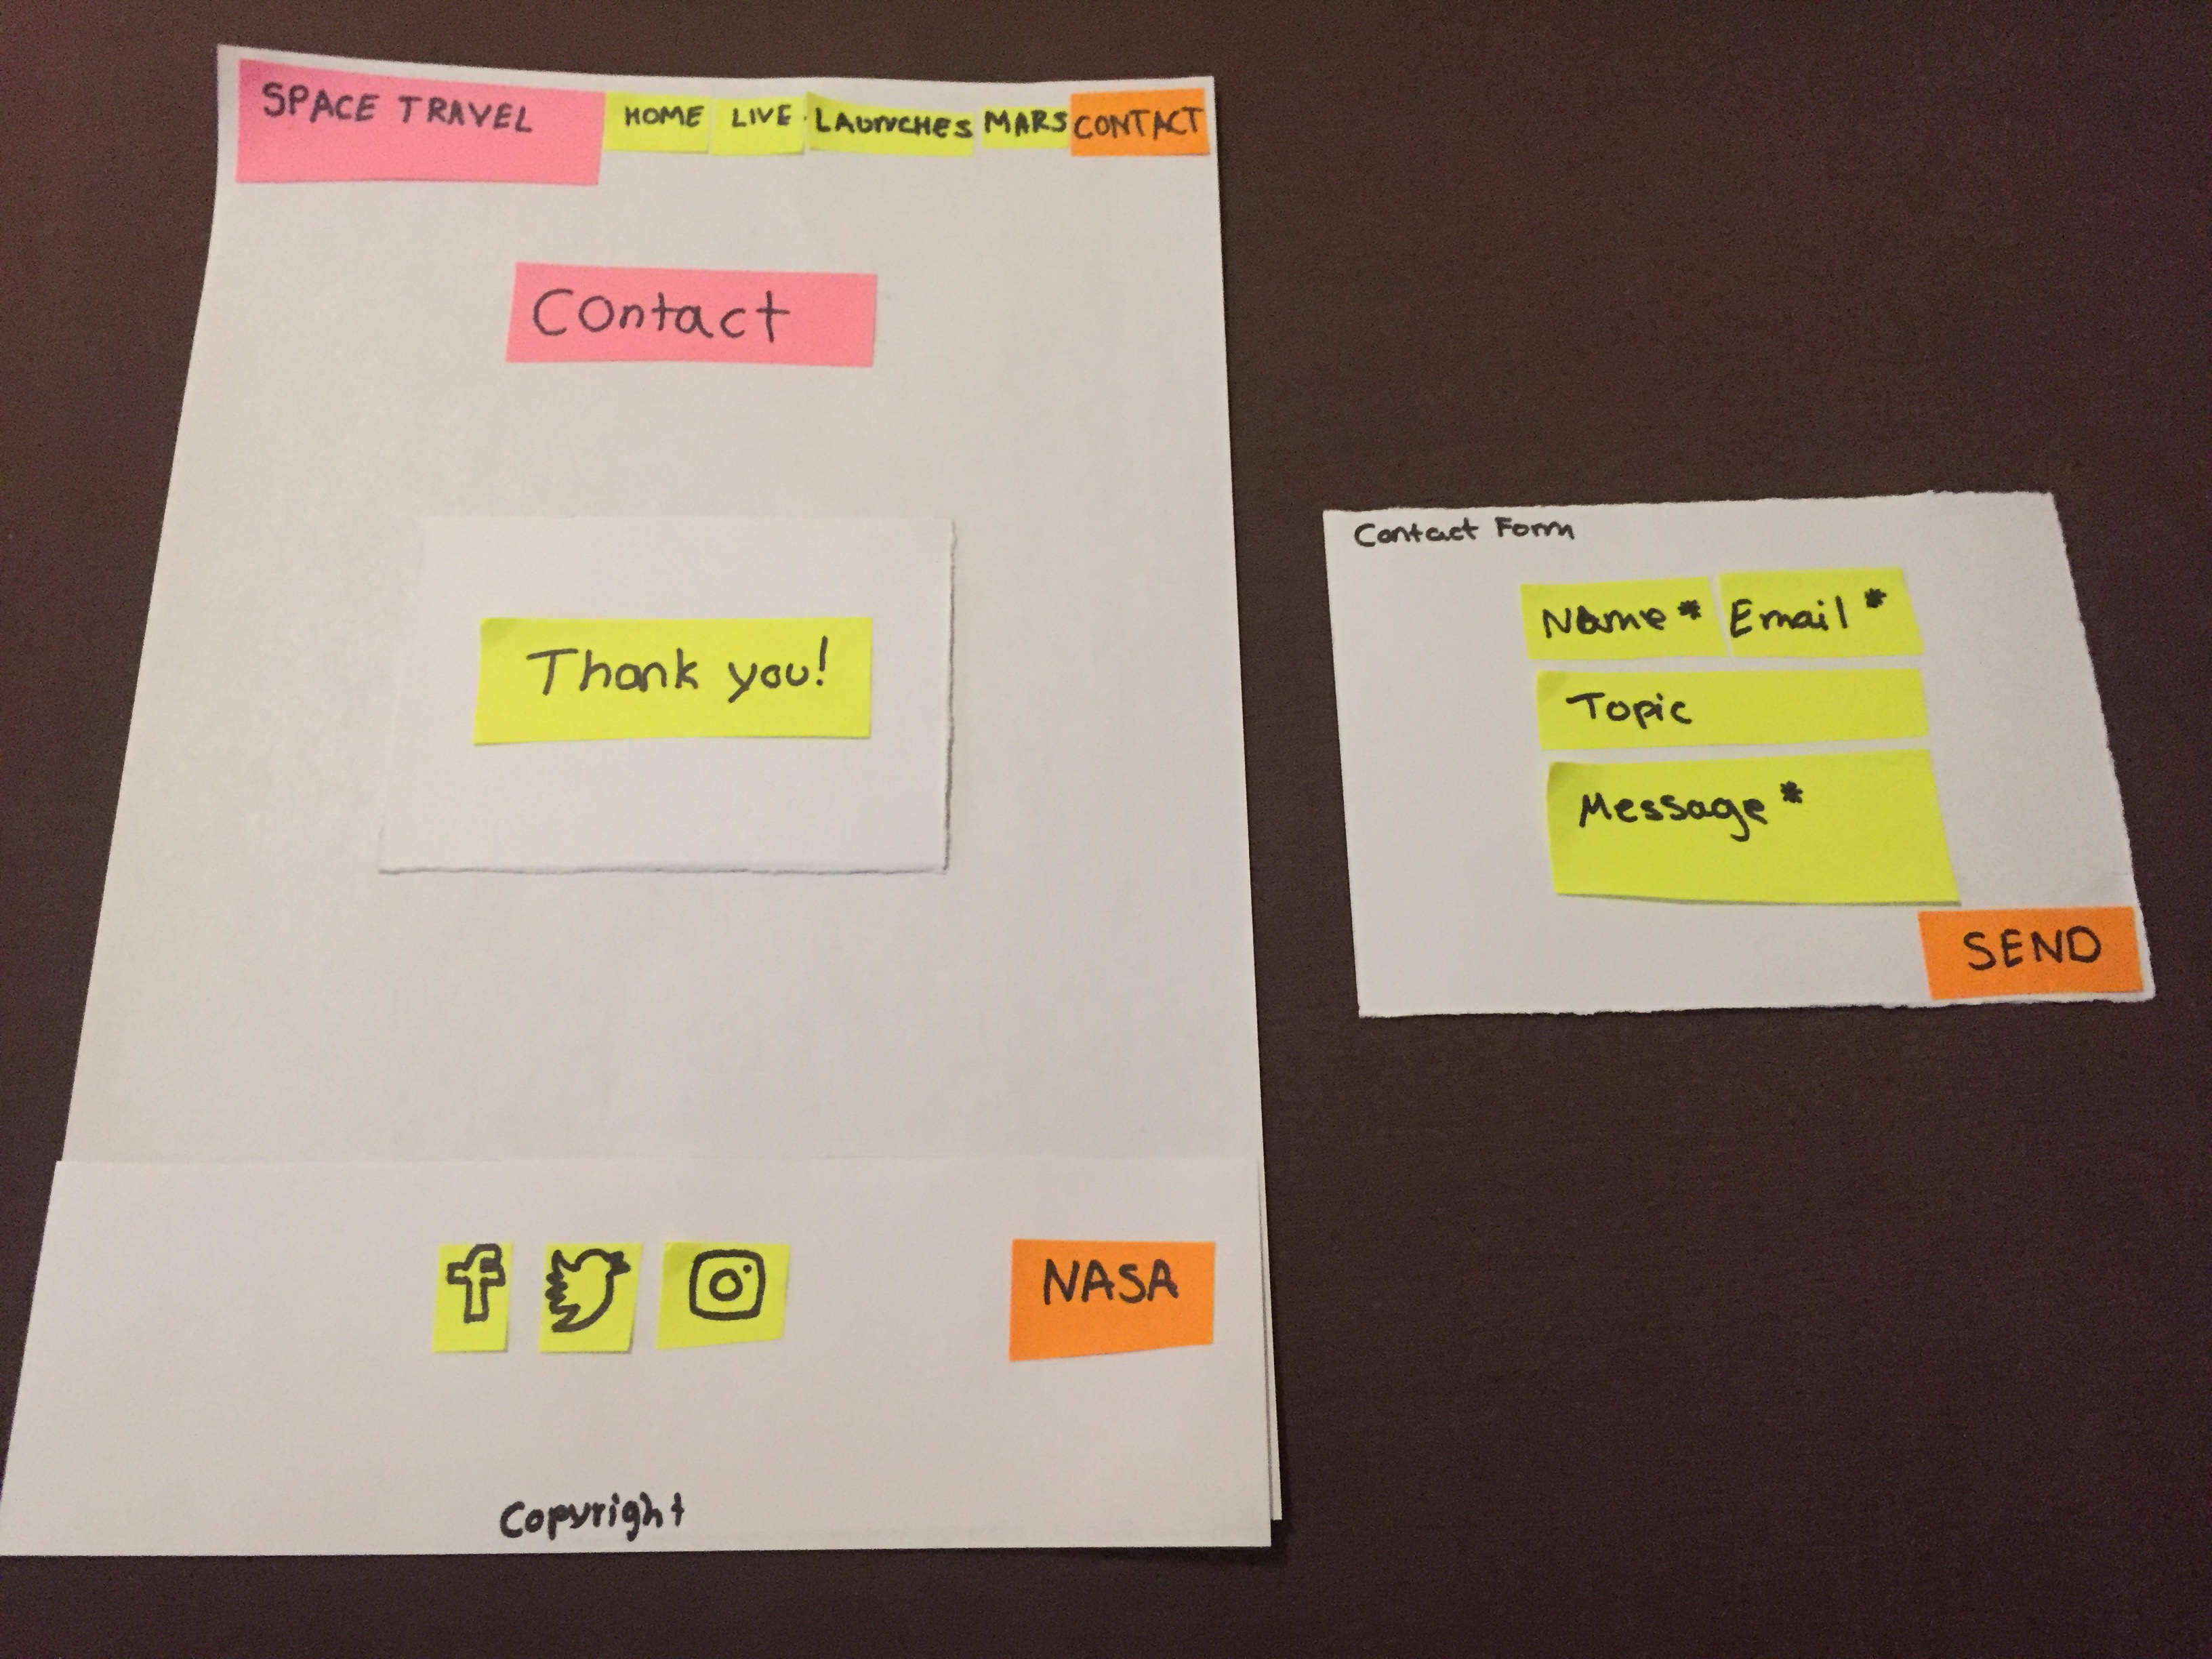 SPACE TRAVEL HOME LIVE LAUNCHES MARS CONTACT
Contact
Thank you!
NASA
Copyright
Contact Form
Name* Email*
Topic
Message*
SEND